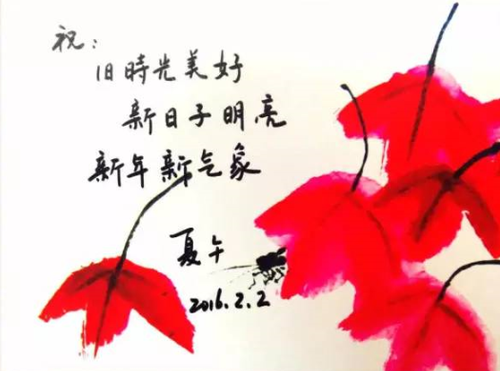 祝:
旧時光美好
新日子明亮
新年新气象
夏午
2016.2.2